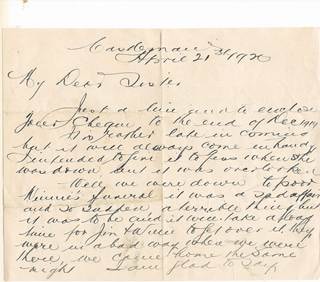 April 21st 1920
My Dear Sister
Just a line and to enclose
your Cheque to the end of Dec 1919
its rather late in coming
but it will always come in handy
I intended to give it to Jess when she
was down but it was overlooked
Well we were down to poor
Minnie's funeral it was a sad affair
and so sudden a terrible thing but
it was to be and it will take a long
time for Jim & Willie to get over it they
were in a bad way when we were
there, we came home the same
night I am glad to say